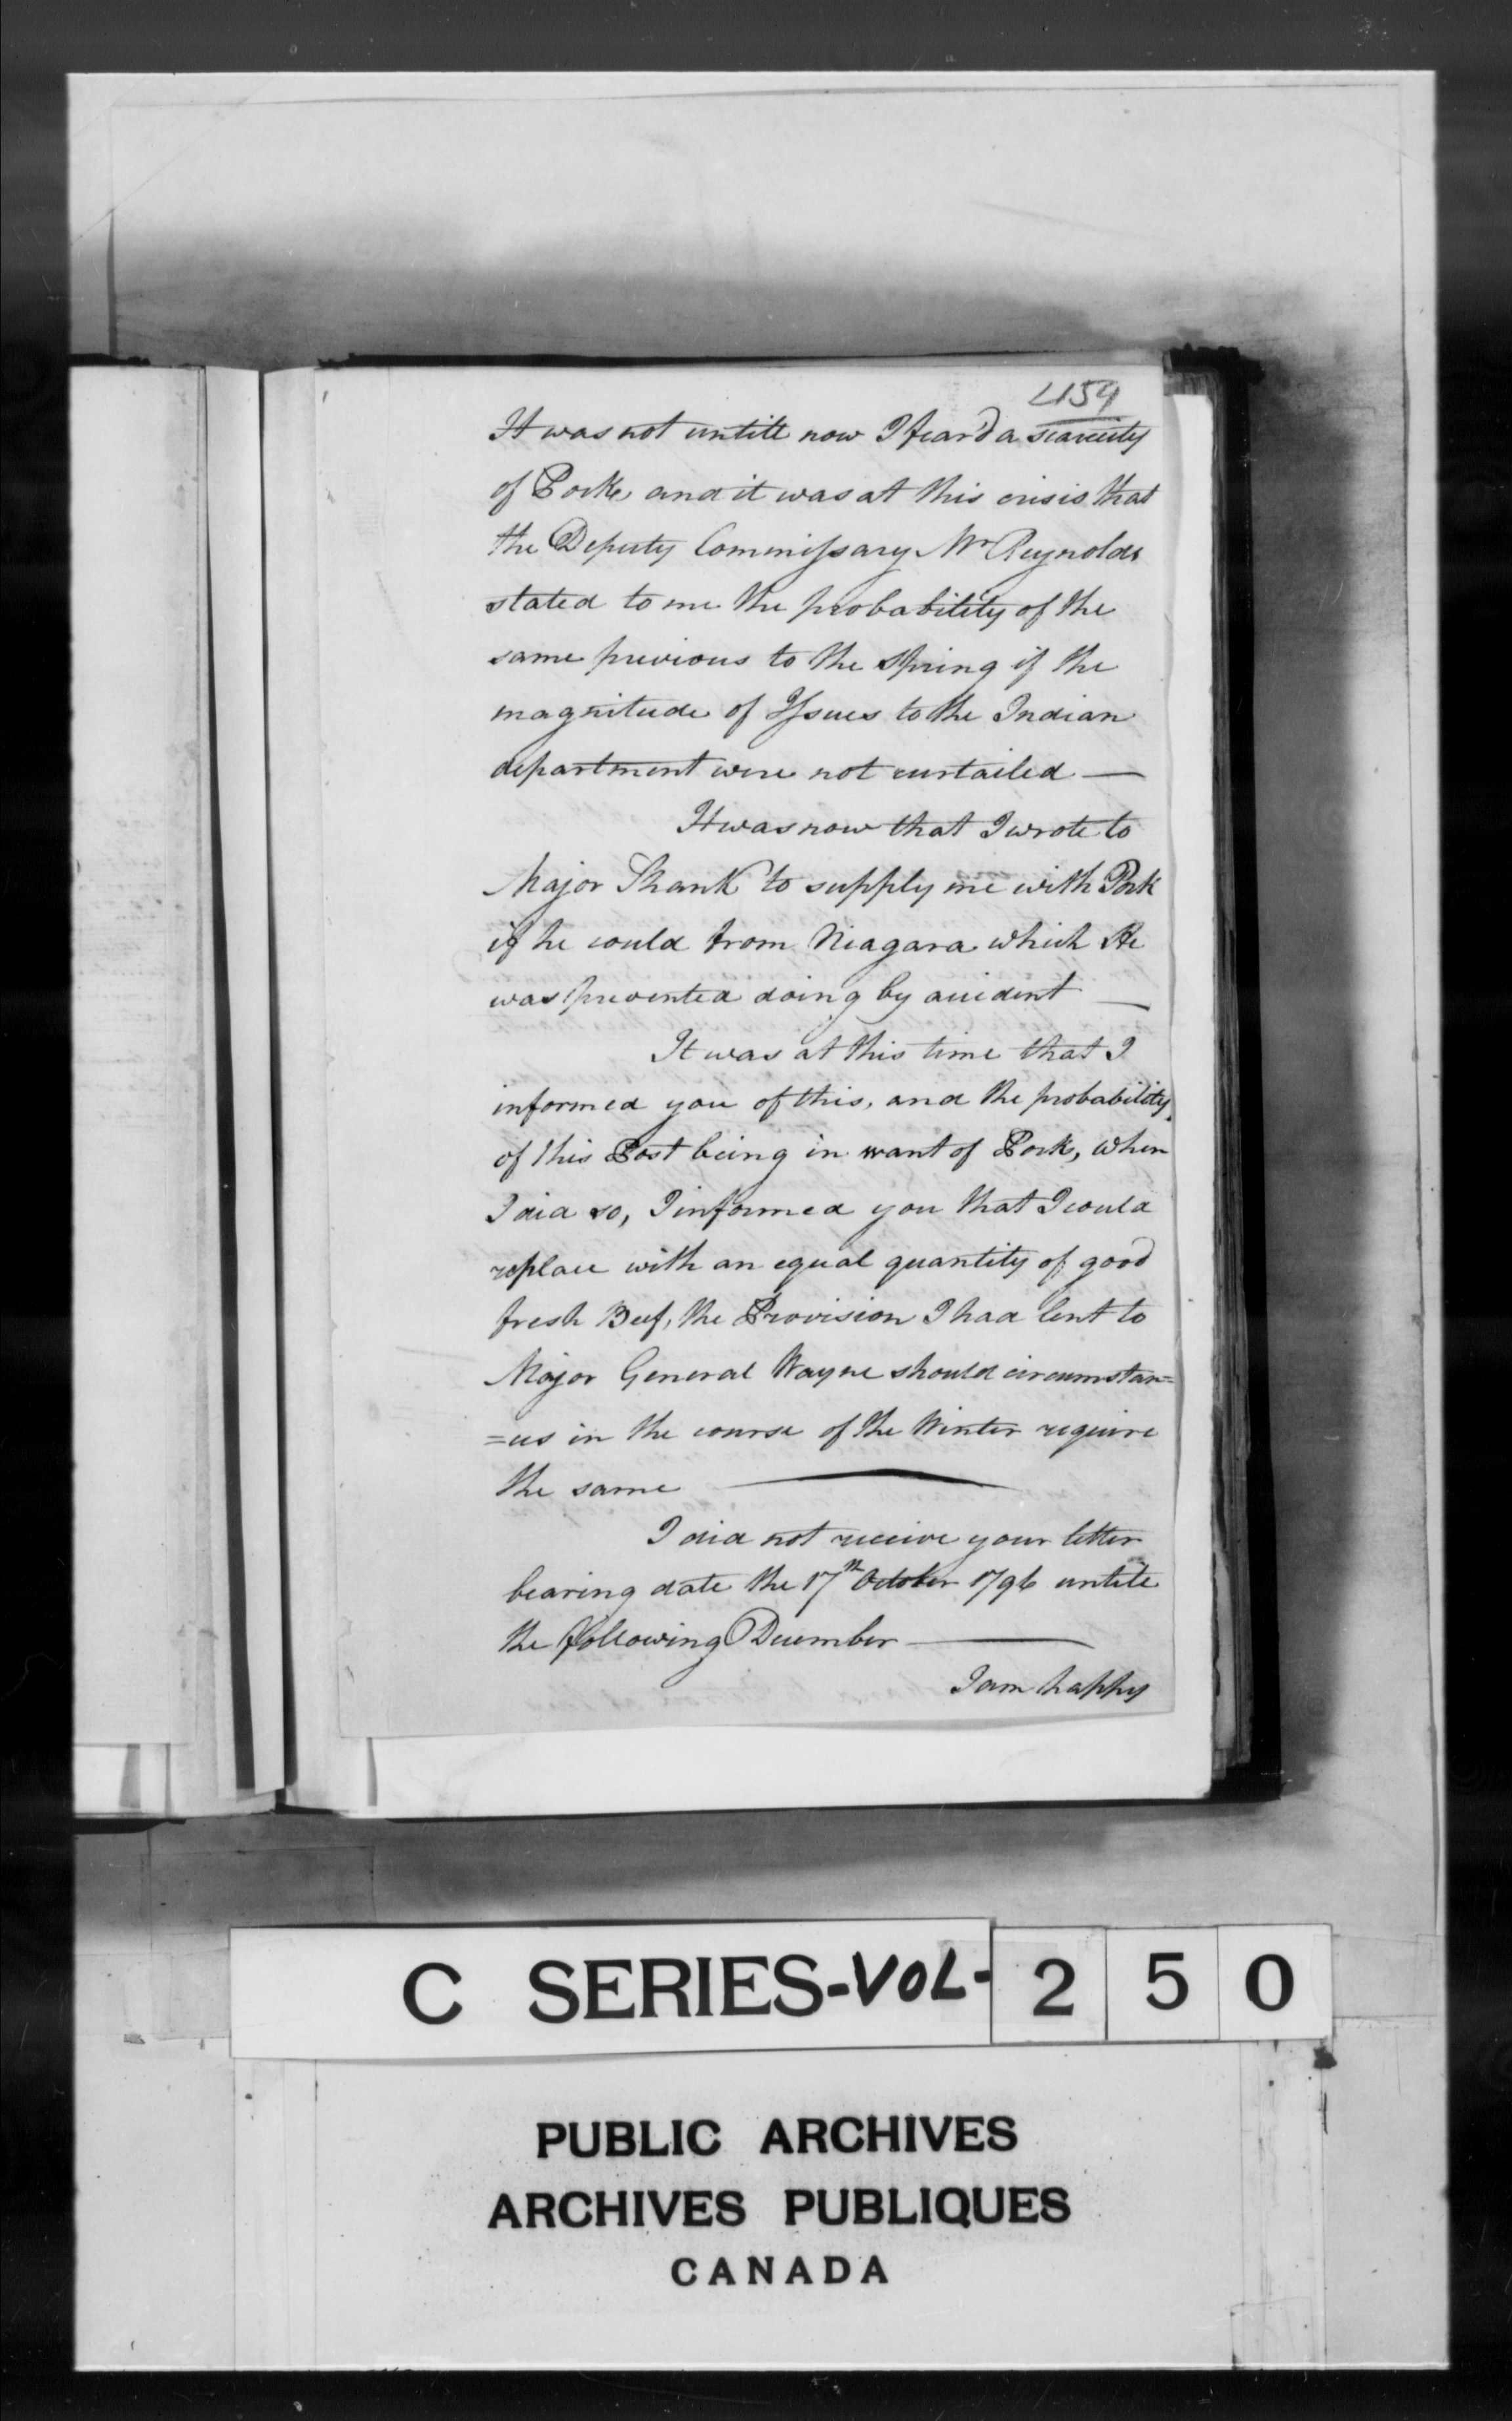 459
It was not untill now I fear'd a scarcity
of Pork, and it was at this crisis that
the Deputy Commissary Mr Reynolds
stated to me the probability of the
same previous to the Spring if the
magnitude of Issues to the Indian
department were not curtailed —
It was now that I wrote to
Major Shank to supply me with Pork
if he could from Niagara which He
was prevented doing by accident —
It was at this time that I
informed you of this, and the probability
of this Post being in want of Pork, when
I did so, I informed you that I would
replace with an equal quantity of good
fresh Beef, the Provision I had lent to
Major General Wayne should circumstan=
=ces in the course of the Winter require
the same —
I did not receive your letter
bearing date the 17th October 1796 untill
the following December —
I am happy
C SERIES-VOL- 2 5 0
PUBLIC ARCHIVES
ARCHIVES PUBLIQUES
CANADA